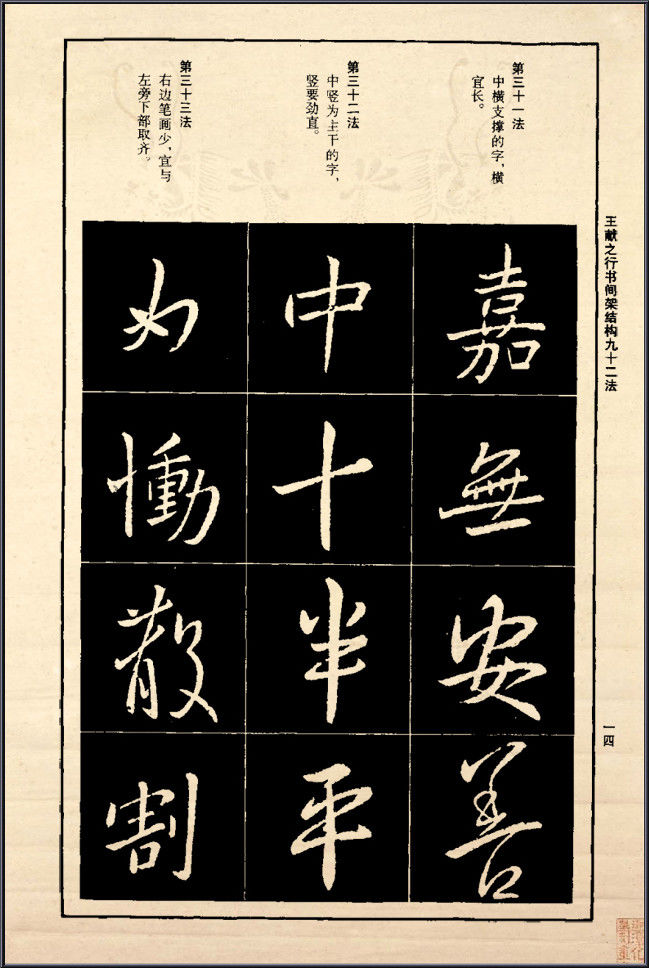 王献之行书间架结构九十二法
一四
第三十一法
中横支撑的字，横
宜长。
嘉
無
安
善
第三十二法
中竖为主干的字，
竖要劲直。
中
十
半
平
第三十三法
右边笔画少，宜与
左旁下部取齐。
慟
散
割